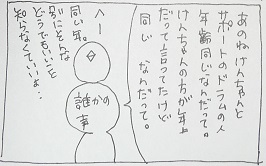 あのねけんちゃんと
サポートのドラムの人
年齢同じなんだって。
けんちゃんの方が年上
だって言ってたけど
同じなんだって。
へー
同い年。
別にそんな
どうでもいいこと
知らなくていいよ‥
誰かの
事